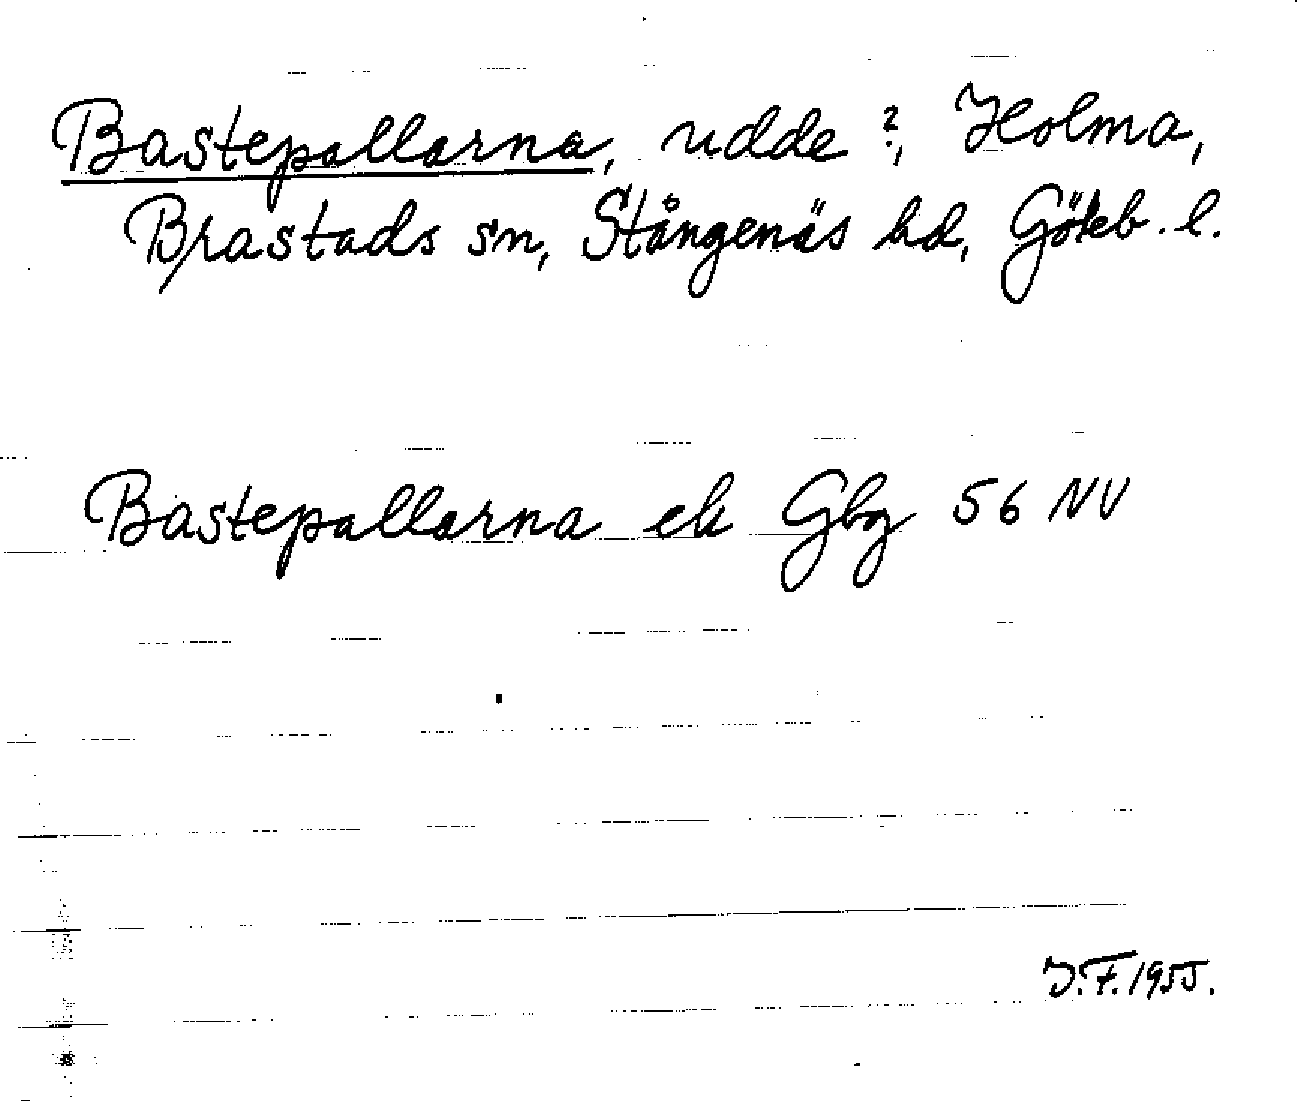 Bastepallarna, udde ?, Holma,
Brastads sn, Stångenäs hd, Göteb. l.
Bastepallarna ek Gbg 56 NV
J.F. 1955.